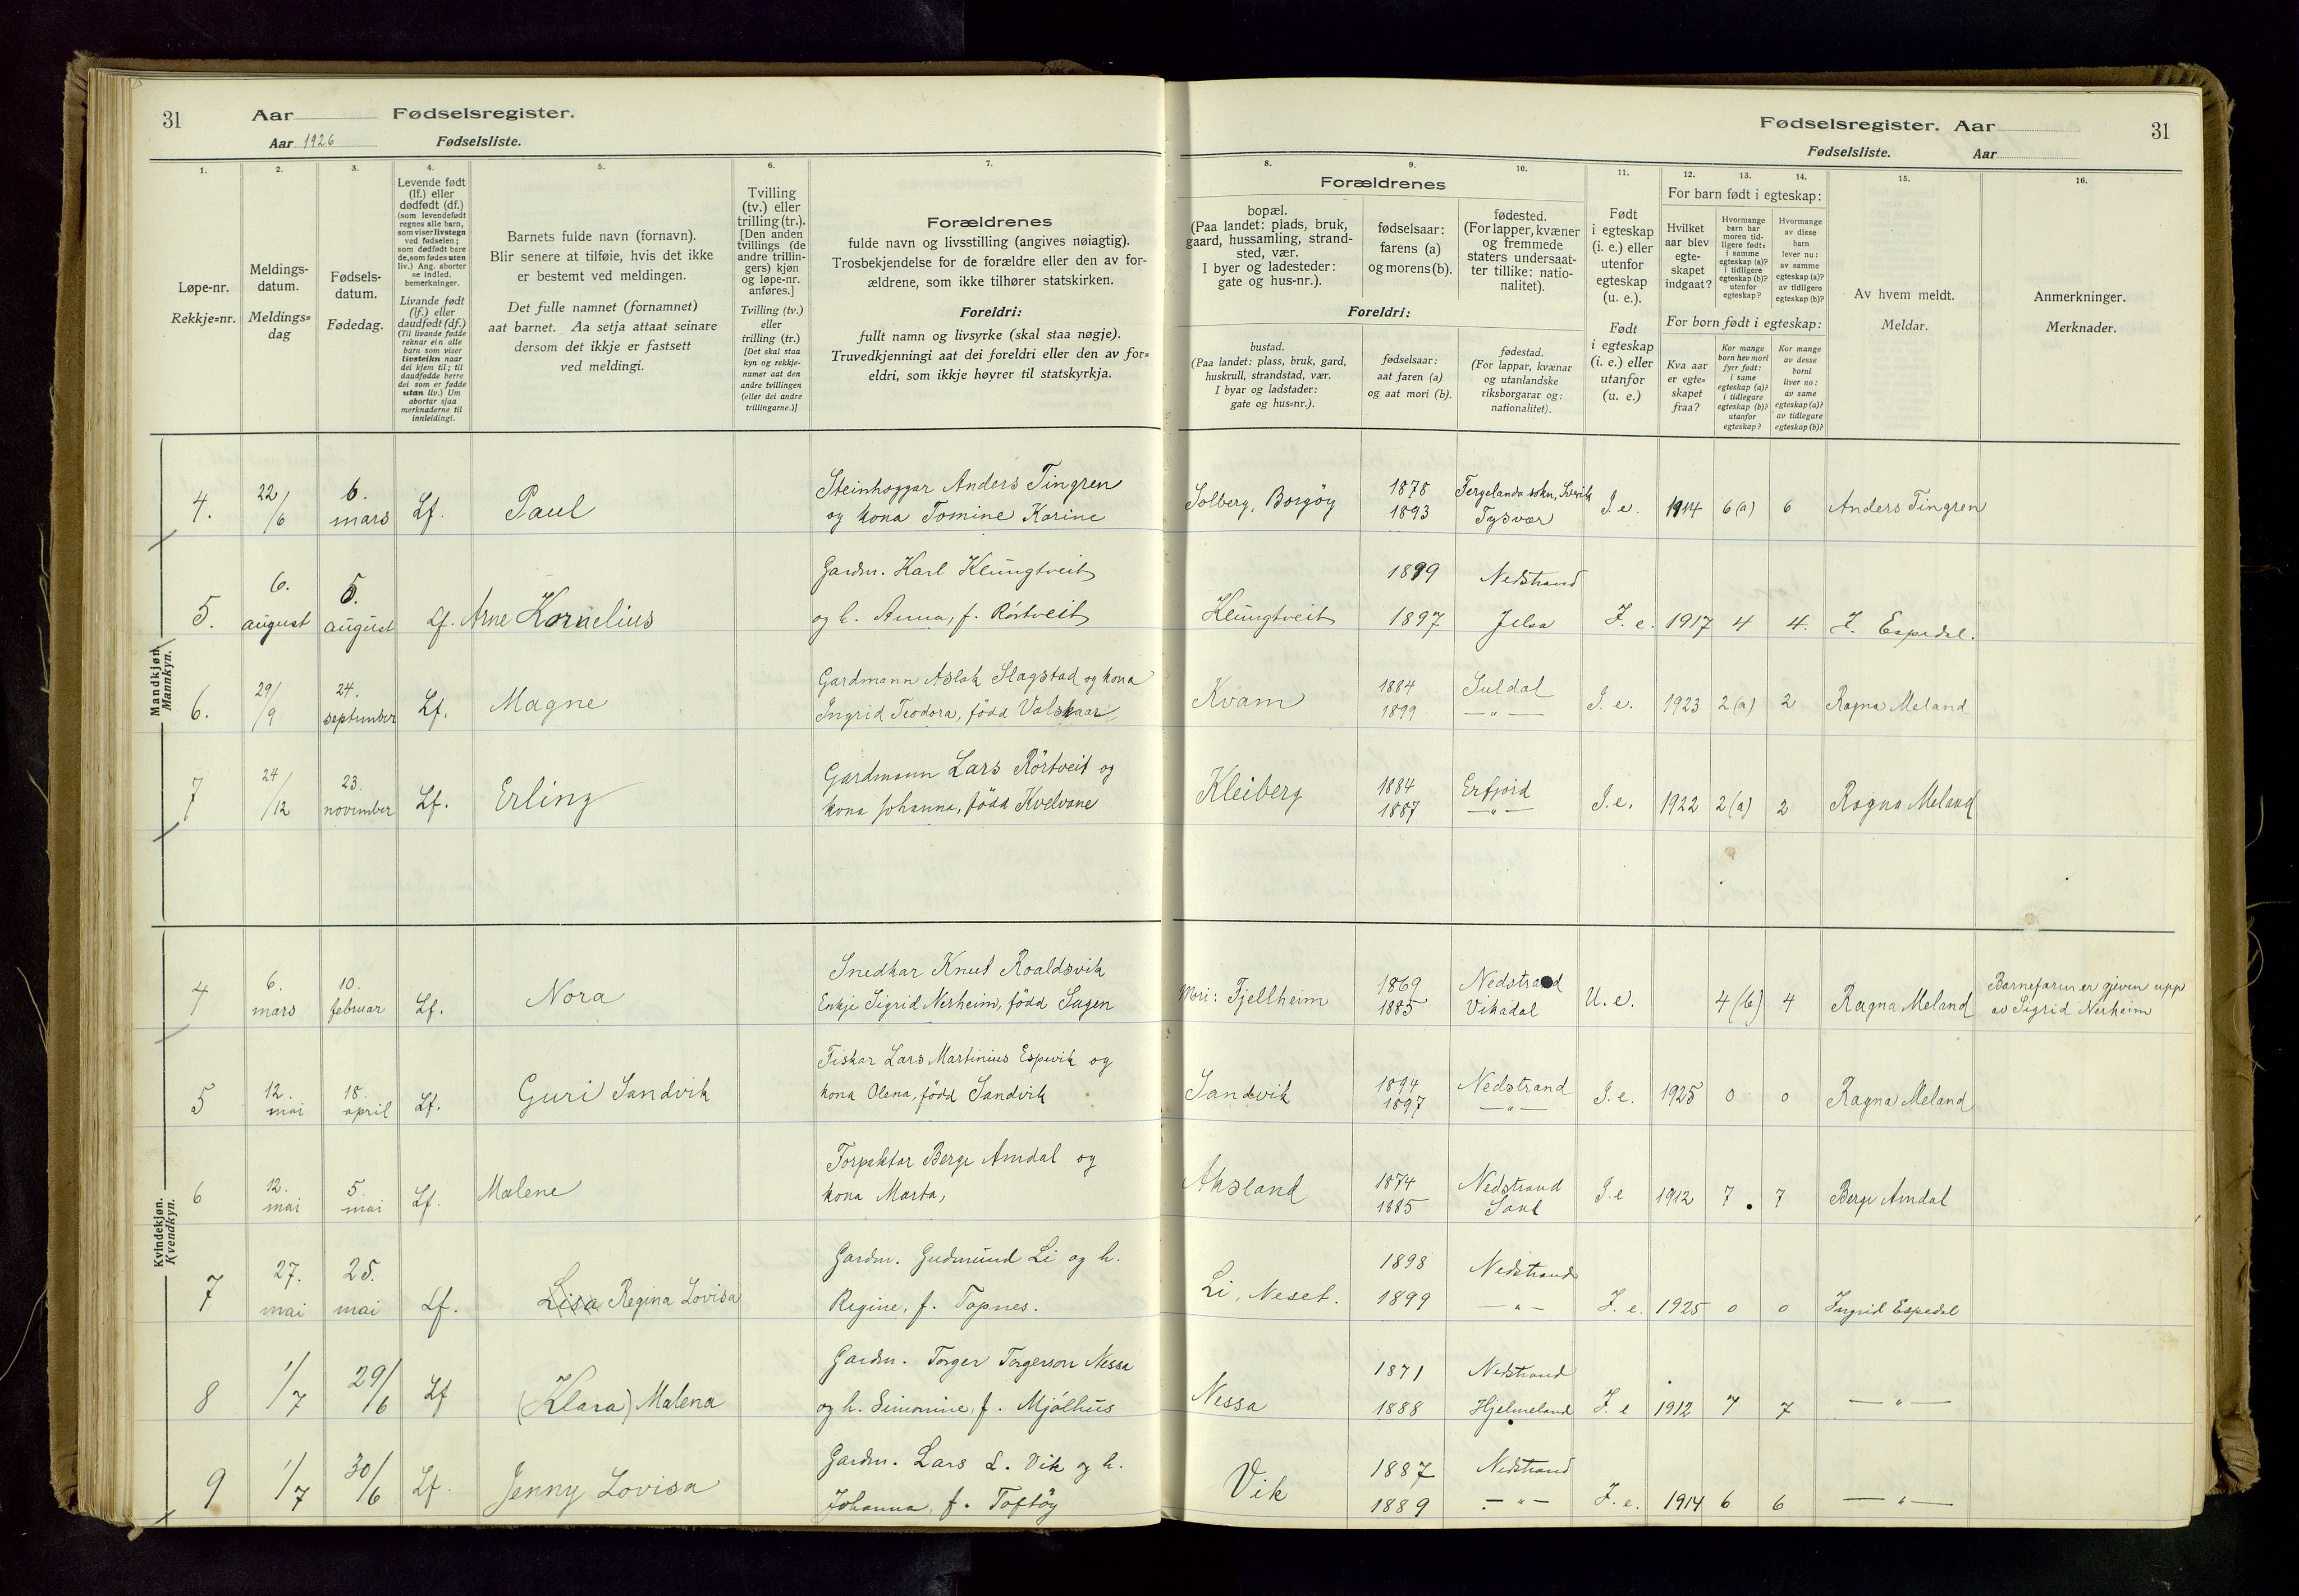 31
Aar Fødselsregister.
Aar 1926 Fødselsliste.
1.
Løpe-nr.
Rekkje=nr.
2.
Meldings-
datum.
Meldings=
dag
3.
Fødsels-
datum.
Fødedag.
4.
Levende født
(lf.) eller
dødfødt (df.)
(som levendefødt
regnes alle barn,
som viser livstegn
ved fødselen;
som dødfødt bare
de, som fødes uten
liv.) Ang. aborter
se indled.
bemerkninger.
Livande født
(lf.) eller
daudfødt (df.)
(Til livande fødde
reknar ein alle
barn som viser
livsteikn naar
dei kjem til; til
daudfødde berre
dei som er fødde
utan liv.) Um
abortar sjaa
merknaderne til
innleidingi.
5.
Barnets fulde navn (fornavn).
Blir senere at tilføie, hvis det ikke
er bestemt ved meldingen.
Det fulle namnet (fornamnet)
aat barnet. Aa setja attaat seinare
dersom det ikkje er fastsett
ved meldingi.
6.
Tvilling
(tv.) eller
trilling (tr.).
[Den anden
tvillings (de
andre trillin-
gers) kjøn
og løpe-nr.
anføres.]
Tvilling (tv.)
eller
trilling (tr.)
[Det skal staa
kyn og rekkje-
numer aat den
andre tvillingen
(eller dei andre
trillingarne.)]
7.
Forældrenes
fulde navn og livsstilling (angives nøiagtig).
Trosbekjendelse for de forældre eller den av for-
ældrene, som ikke tilhører statskirken.
Foreldri:
fullt namn og livsyrke (skal staa nøgje).
Truvedkjenningi aat dei foreldri eller den av for=
eldri, som ikkje høyrer til statskyrkja.
Fødselsregister. Aar
31
Fødselsliste. Aar
Forældrenes
8.
bopæl.
(Paa landet: plads, bruk,
gaard, hussamling, strand-
sted, vær.
I byer og ladesteder:
gate og hus-nr.).
9.
fødselsaar:
farens (a)
og morens (b).
10.
fødested.
(For lapper, kvæner
og fremmede
staters undersaat-
ter tillike: natio-
nalitet).
Foreldri:
bustad.
(Paa landet: plass, bruk, gard,
huskrull, strandstad, vær.
I byar og ladstader:
gate og hus=nr.).
fødselsaar:
aat faren (a)
og aat mori (b).
fødestad.
(For lappar, kvænar
og utanlandske
riksborgarar og:
nationalitet).
11.
Født
i egteskap
(i. e.) eller
utenfor
egteskap
(u. e.).
Født
i egteskap
(i. e.) eller
utanfor
(u. e.)
12. 13. 14.
For barn født i egteskap:
Hvilket
aar blev
egte-
skapet
indgaat?
Hvormange
barn har
moren tid-
ligere født:
i samme
egteskap (a)?
i tidligere
egteskap (b)?
utenfor
egteskap?
Hvormange
av disse
barn
lever nu:
av samme
egteskap (a)?
av tidligere
egteskap (b)?
For born født i egteskap:
Kva aar
er egte=
skapet
fraa?
Kor mange
born hev mori
fyrr født:
i same
egteskap (a)?
i tidlegare
egteskap (b)?
utanfor
egteskap?
Kor mange
av desse
borni
liver no:
av same
egteskap (a)?
av tidlegare
egteskap (b)?
15.
Av hvem meldt.
Meldar.
16.
Anmerkninger.
Merknader.
Mandkjøn.
Mannkyn.
4. 22/6 6. mars Lf. Paul
Steinhoggar Anders Tingren
og kona Tomine Karine
Solberg, Borgøy 1878 1893
Tysvær
I. e. 1914 6 (a) 6 Anders Tingren
5. 6. august 5. august Lf. Arne Kornelius
Gardm. Karl Klungtveit
og h. Anna, f. Rörtveit
Klungtveit 1899 Nedstrand
1897 Jelsa
I. e. 1917 4 4. I. Espedal.
6. 29/9 24. september Lf. Magne
Gardmann Aslak Slagstad og kona
Ingrid Teodora, född Valskaar
Kvam 1884 Suldal
1899 —„—
I. e. 1923 2 (a) 2 Ragna Meland
7 24/12 23. november Lf. Erling
Gardmann Lars Rörtveit og
kona Johanna, född Kvelvane
Kleiberg 1884 Erfjord
1887 —„—
I. e. 1922 2 (a) 2 Ragna Meland
Kvindekjøn.
Kvendkyn.
4 6. mars 10. februar Lf. Nora
Snedkar Knut Roaldsvik
Enkje Sigrid Nerheim, född Sagen
Mori: Fjellheim 1869 Nedstrand
1885 Vikadal
U. e. 4 (b) 4 Ragna Meland
Barnefaren er given upp
av Sigrid Nerheim
5 12. mai 18. april Lf. Guri Sandvik
Fiskar Lars Martinius Espevik og
kona Olena, född Sandvik
Sandvik 1894 Nedstrand
1897 —„—
I. e. 1925 0 0 Ragna Meland
6 12. mai 5. mai Lf. Malene
Forpaktar Berge Amdal og
kona Marta,
Aksland 1874 Nedstrand
1885 Sand
I. e 1912 7 7 Berge Amdal
7 27. mai 25. mai Lf. Lisa Regina Lovisa
Gardm. Gudmund Li og h.
Regine, f. Topnes.
Li, Neset. 1898 Nedstrand
1899 —„—
I. e. 1925 0 0 Ingrid Espedal
8 1/7 29/6 Lf (Klara) Malena
Gardm. Torger Torgerson Nessa
og h. Simonine, f. Mjólhus
Nessa 1871 Nedstrand
1888 Hjelmeland
I. e 1912 7 7 —„—
9 1/7 30/6 Lf. Jenny Lovisa
Gardm. Lars L. Vik og h.
Johanna, f. Toftöy
Vik 1887 Nedstrand
1889 —„—
I. e. 1914 6 6 —„—